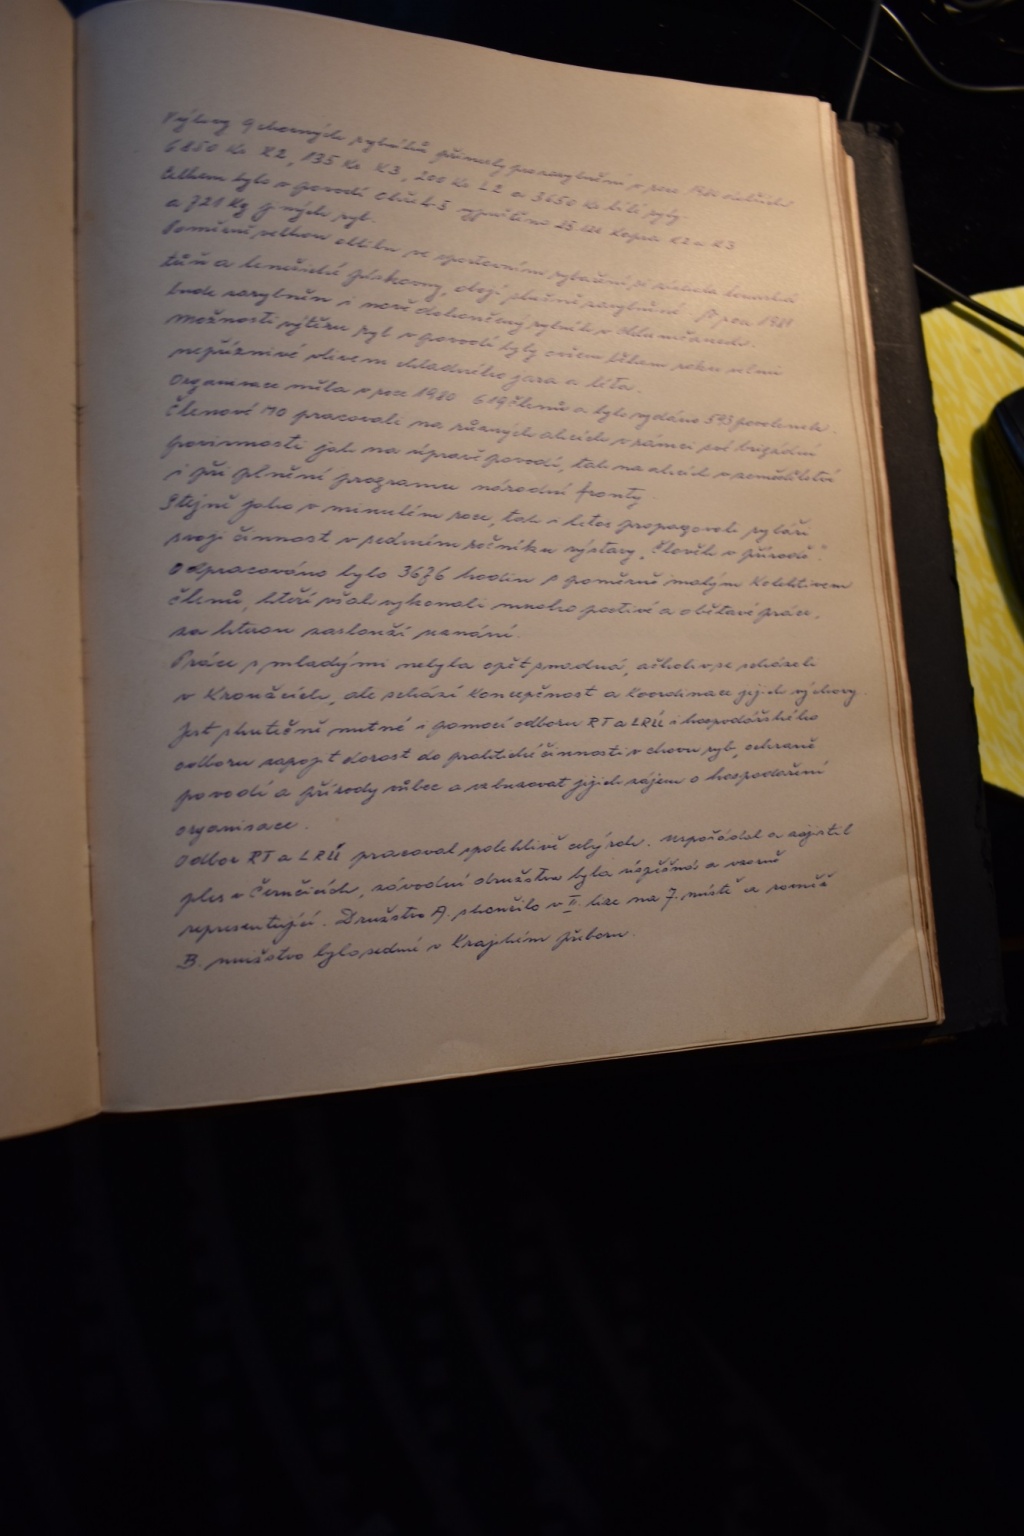 Výlovy 9 chovných rybníků přinesly pro zarybnění v roce 1980
6850 Ks K2, 135 Ks K3, 200 Ks L2 a 3650 Ks bílé ryby.
Celkem bylo v povodí Ohře 4-5 vypuštěno Kapra K2 a K3
a 721 Kg jiných ryb.
Poměrně velkou oblibu ve sportovním rybaření si získala
tůň a lenešická pískovny, obojí slušně zarybněné. V roce 1981
bude zarybněn i nově dokončený rybník v Chlumčanech.
Možnosti výtěru ryb v povodí byly ovšem během roku velmi
nepříznivé vlivem chladného jara a léta.
Organisace měla v roce 1980 619 členů a bylo vydáno 593 povolenek.
Členové MO pracovali na různých akcích v rámci své brigádní
povinnosti jak na úpravě povodí, tak na akcích v zemědělství
i při plnění programu národní fronty.
Stejně jako v minulém roce, tak i letos propagovali rybáři
svoji činnost v sedmém ročníku výstavy „Člověk v přírodě".
Odpracováno bylo 3676 hodin s poměrně malým Kolektivem
členů, kteří však vykonali mnoho poctivé a obětavé práce,
za kterou zaslouží uznání.
Práce s mladými nebyla opět snadná, ačkoliv se scházeli
v Kroužcích, ale schází Koncepčnost a Koordinace jejich výchovy.
Jest skutečně nutné i pomocí odboru RT a LRÚ i hospodářského
odboru zapojit dorost do praktické činnosti v chovu ryb, ochraně
povodí a přírody vůbec a vzbuzovat jejich zájem o hospodaření
organisace.
Odbor RT a LRÚ pracoval spolehlivě celý rok. Uspořádal a zajistil
ples v Černčicích, závodní družstva byla úspěšná a vzorně
representující. Družstvo A. skončilo v II. lize na 7. místě a
B. mužstvo bylo sedmé v Krajském přeboru.